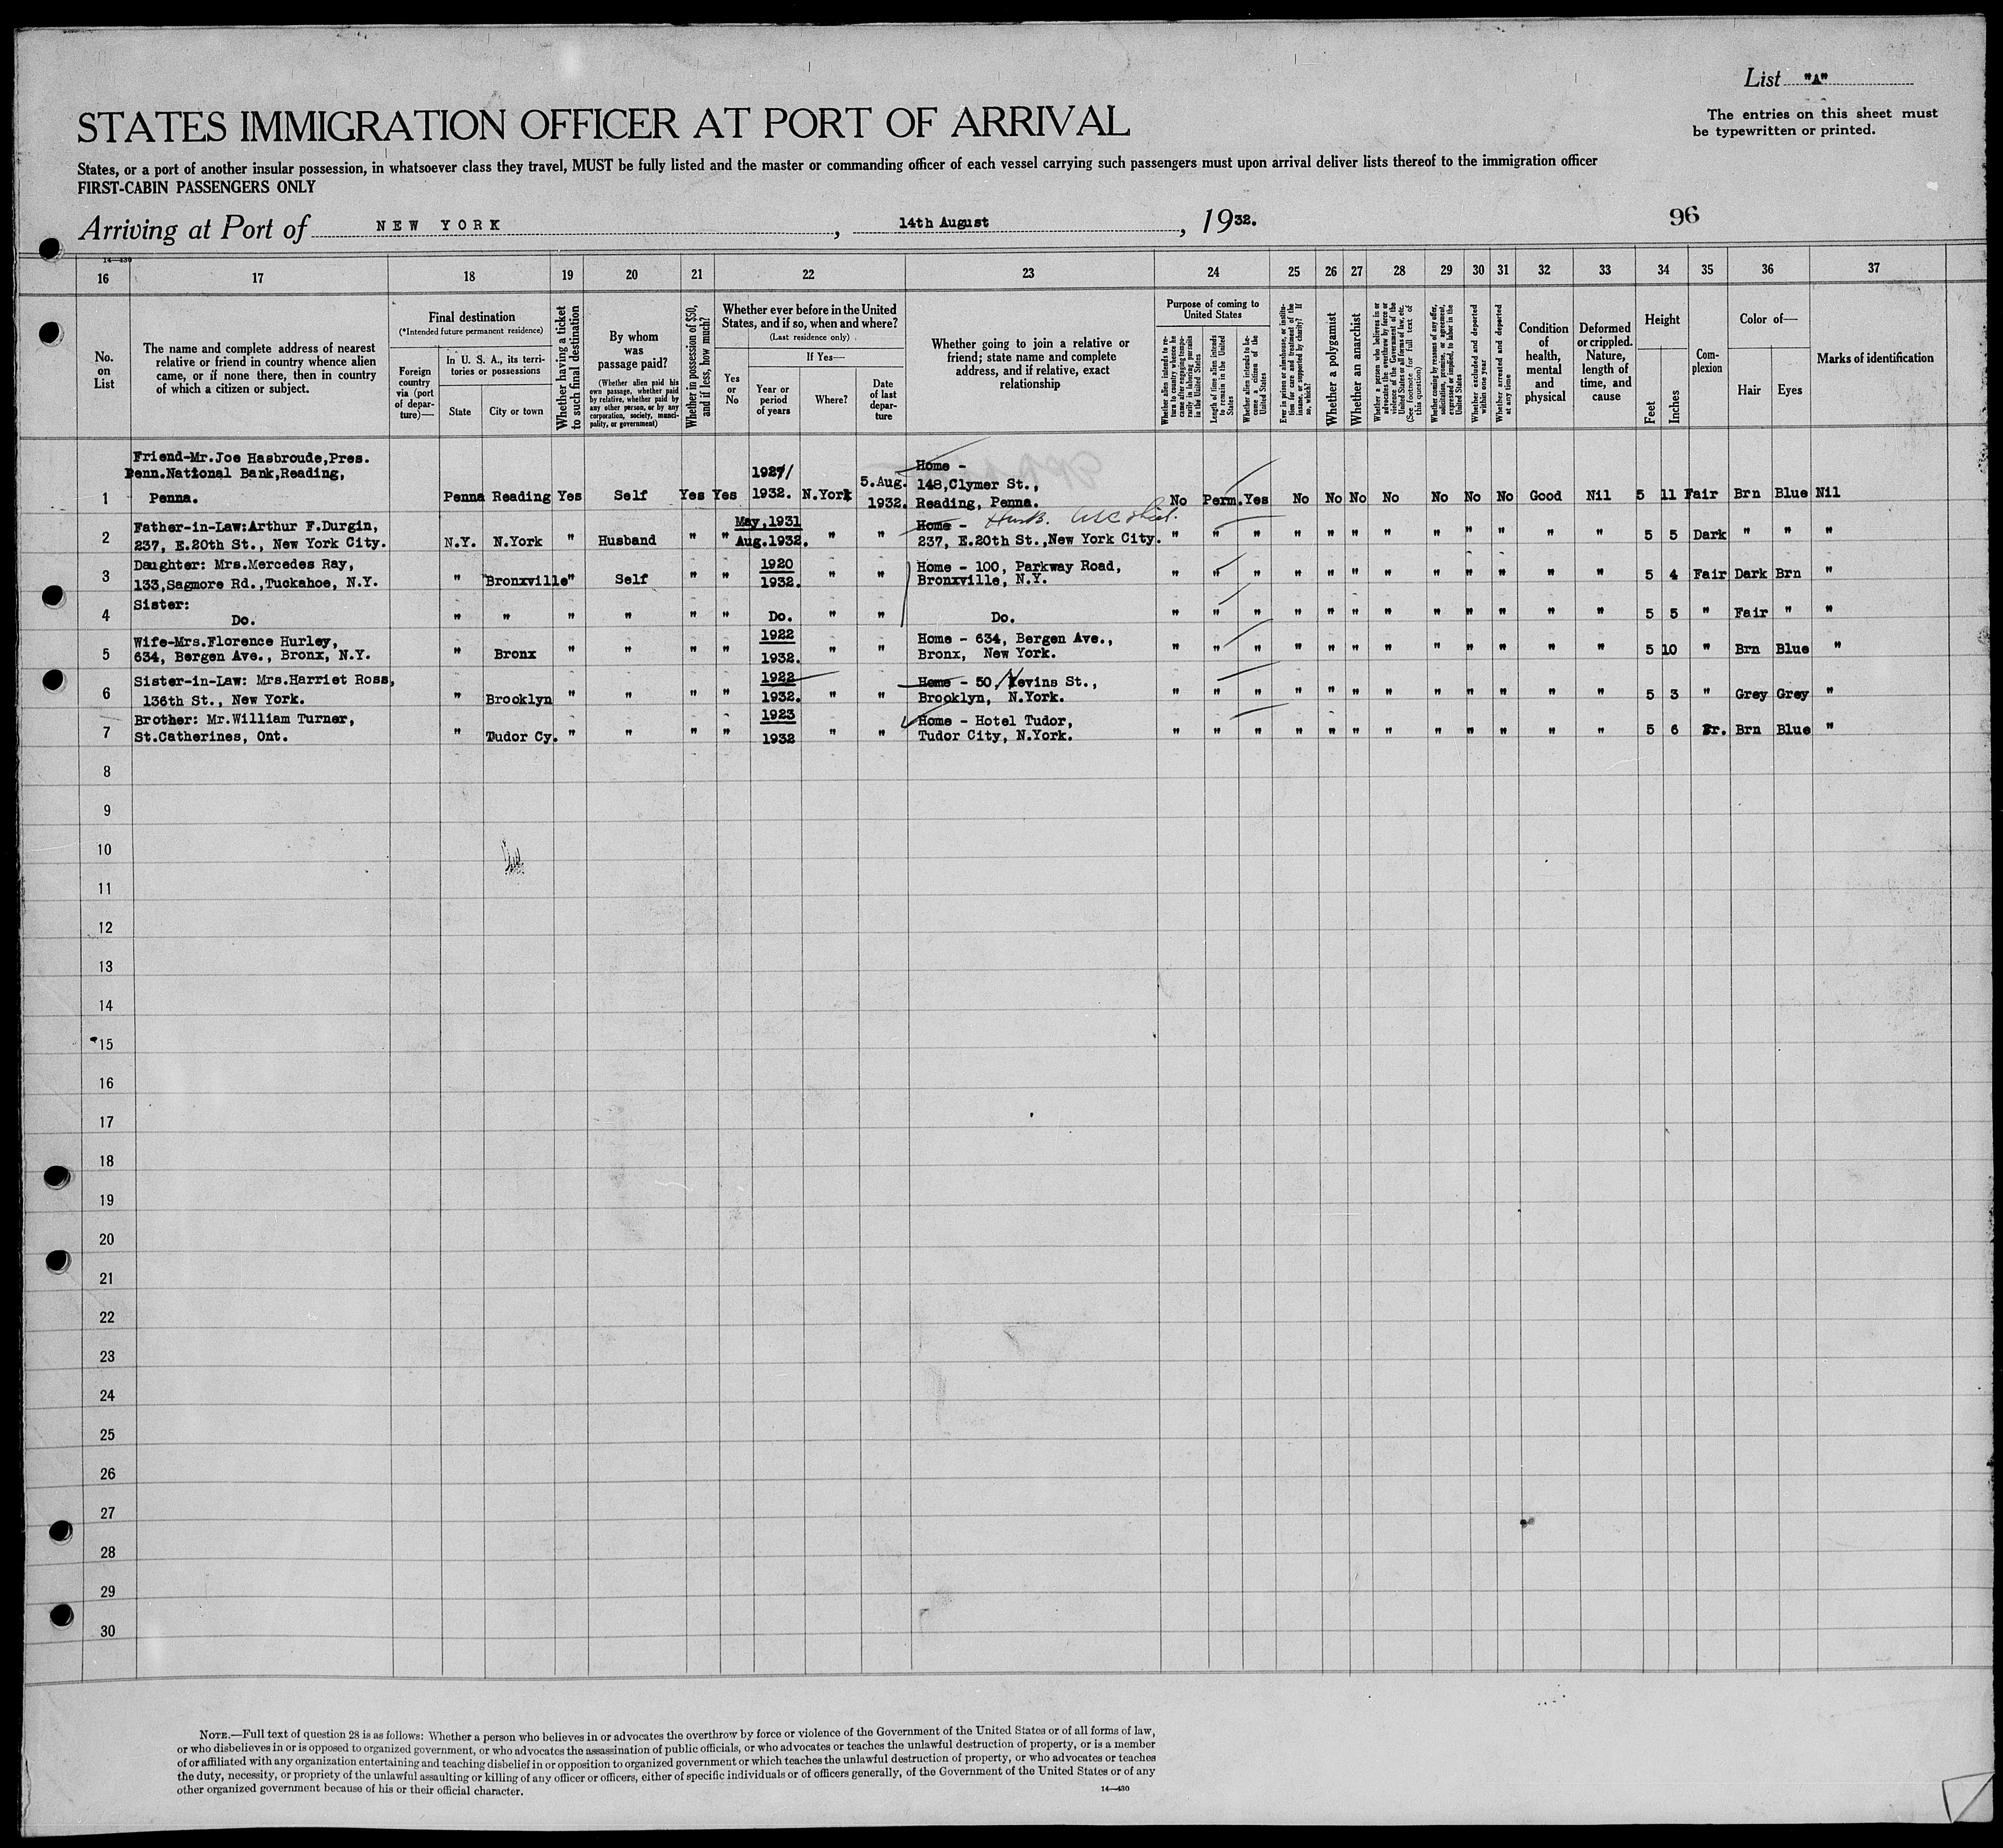 List "A"
The entries on this sheet must
be typewritten or printed.
STATES IMMIGRATION OFFICER AT PORT OF ARRIVAL
States, or a port of another insular possession, in whatsoever class they travel, MUST be fully listed and the master or commanding officer of each vessel carrying such passengers must upon arrival deliver lists thereof to the immigration officer
FIRST-CABIN PASSENGERS ONLY
Arriving at Port of NEW YORK, 14th August, 1932.
96
14—430
16 17 18 19 20 21 22 23 24 25 26 27 28 29 30 31 32 33 34 35 36 37
No.
on
List
The name and complete address of nearest
relative or friend in country whence alien
came, or if none there, then in country
of which a citizen or subject.
Final destination
(*Intended future permanent residence)
Foreign
country
via (port
of depar-
ture)—
In U. S. A., its terri-
tories or possessions
State
City or town
Whether having a ticket
to such final destination
By whom
was
passage paid?
(Whether alien paid his
own passage, whether paid
by relative, whether paid by
any other person, or by any
corporation, society, munici-
pality, or government)
Whether in possession of $50,
and if less, how much?
Whether ever before in the United
States, and if so, when and where?
(Last residence only)
Yes
or
No
If Yes—
Year or
period
of years
Where?
Date
of last
depar-
ture
Whether going to join a relative or
friend; state name and complete
address, and if relative, exact
relationship
Purpose of coming to
United States
Whether alien intends to re-
turn to country whence he
came after engaging tempo-
rarily in laboring pursuits
in the United States
Length of time alien intends
to remain in the United
States
Whether alien intends to be-
come a citizen of the
United States
Ever in prison or almshouse, or institu-
tion for care and treatment of the
insane, or supported by charity? If
so, which?
Whether a polygamist
Whether an anarchist
Whether a person who believes in or
advocates the overthrow by force or
violence of the Government of the
United States or all forms of law, etc.
(See footnote for full text of
this question)
Whether coming by reasons of any offer,
solicitation, promise, or agreement,
expressed or implied, to labor in the
United States
Whether excluded and deported
within one year
Whether arrested and deported
at any time
Condition
of
health,
mental
and
physical
Deformed
or crippled.
Nature,
length of
time, and
cause
Height
Feet
Inches
Com-
plexion
Color of—
Hair Eyes
Marks of identification
Friend-Mr.Joe Hasbroude,Pres.
Penn.National Bank,Reading,
1 Penna. Penna Reading Yes Self Yes Yes 1927/
1932. N.York 5.Aug.
1932.
Home -
148,Clymer St.,
Reading, Penna. No Perm. Yes No No No No No No No Good Nil 5 11 Fair Brn Blue Nil
2 Father-in-Law:Arthur F.Durgin,
237, E.20th St., New York City. N.Y. N.York " Husband " " May,1931
Aug.1932. " "
Home - Husb.
237, E.20th St.,New York City. " " " " " " " " " " " " 5 5 Dark " " "
3 Daughter: Mrs.Mercedes Ray,
133,Sagmore Rd.,Tuckahoe, N.Y. " Bronxville " Self " " 1920
1932. " "
Home - 100, Parkway Road,
Bronxville, N.Y. " " " " " " " " " " " " 5 4 Fair Dark Brn "
4 Sister:
Do. " " " " " " Do. " " Do. " " " " " " " " " " " " 5 5 " Fair " "
5 Wife-Mrs.Florence Hurley,
634, Bergen Ave., Bronx, N.Y. " Bronx " " " " 1922
1932. " "
Home - 634, Bergen Ave.,
Bronx, New York. " " " " " " " " " " " " 5 10 " Brn Blue "
6 Sister-in-Law: Mrs.Harriet Ross,
136th St., New York. " Brooklyn " " " " 1922
1932. " "
Home - 50, Nevins St.,
Brooklyn, N.York. " " " " " " " " " " " " 5 3 " Grey Grey "
7 Brother: Mr.William Turner,
St.Catherines, Ont. " Tudor Cy. " " " " 1923
1932 " "
Home - Hotel Tudor,
Tudor City, N.York. " " " " " " " " " " " " 5 6 Fr. Brn Blue "
8
9
10
11
12
13
14
15
16
17
18
19
20
21
22
23
24
25
26
27
28
29
30
NOTE.—Full text of question 28 is as follows: Whether a person who believes in or advocates the overthrow by force or violence of the Government of the United States or of all forms of law,
or who disbelieves in or is opposed to organized government, or who advocates the assassination of public officials, or who advocates or teaches the unlawful destruction of property, or is a member
of or affiliated with any organization entertaining and teaching disbelief in or opposition to organized government or which teaches the unlawful destruction of property, or who advocates or teaches
the duty, necessity, or propriety of the unlawful assaulting or killing of any officer or officers, either of specific individuals or of officers generally, of the Government of the United States or of any
other organized government because of his or their official character.
14—430